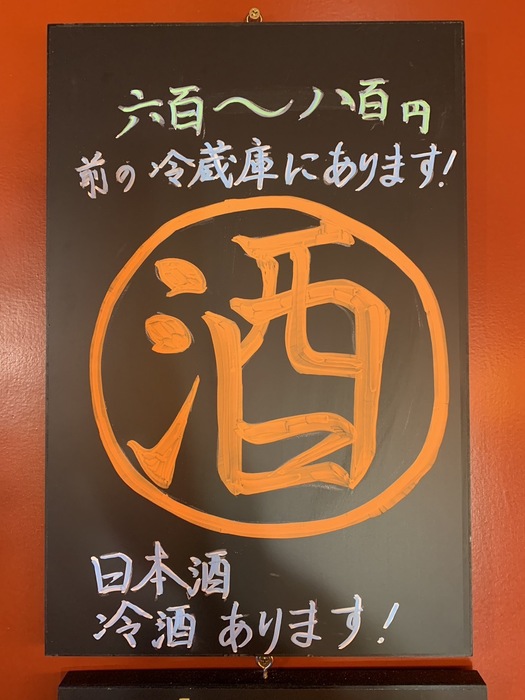 六百〜八百円
前の冷蔵庫にあります!
酒
日本酒
冷酒あります!